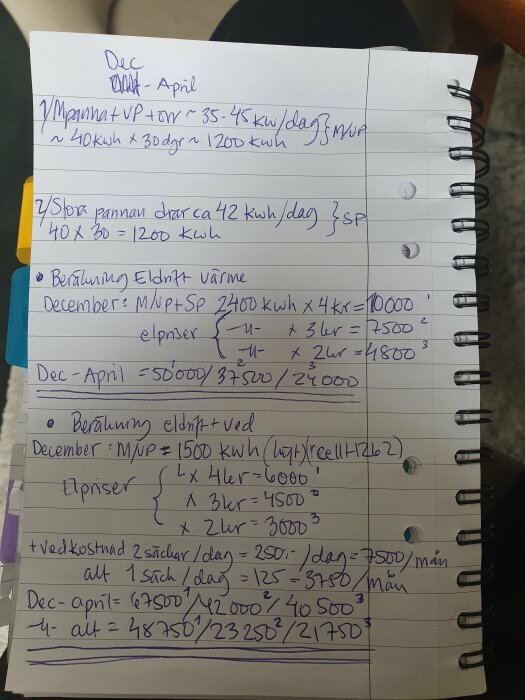 Dec
- April
1/ Mpanna + VP + ~ 35-45 kw/dag } M/VP
~ 40 kwh x 30 dgr ~ 1200 kwh
2/ Stora pannan drar ca 42 kwh/dag } SP
40 x 30 = 1200 kwh
• Beräkning Eldrift värme
December: M/VP + SP 2400 kwh x 4kr = 10000 ¹
elpriser { -u- x 3kr = 7500 ²
-u- x 2kr = 4800 ³
Dec - April = 50000¹ / 37500² / 24000³
• Beräkning eldrift + ved
December: M/VP = 1500 kwh (högt)
Elpriser { x 4kr = 6000 ¹
x 3kr = 4500 ²
x 2kr = 3000 ³
+ vedkostnad 2 säckar/dag = 250:-/dag = 7500/mån
alt 1 säck/dag = 125 = 3750/mån
Dec - april = 67500¹ / 42000² / 40500³
-u- alt = 48750¹ / 23250² / 21750³